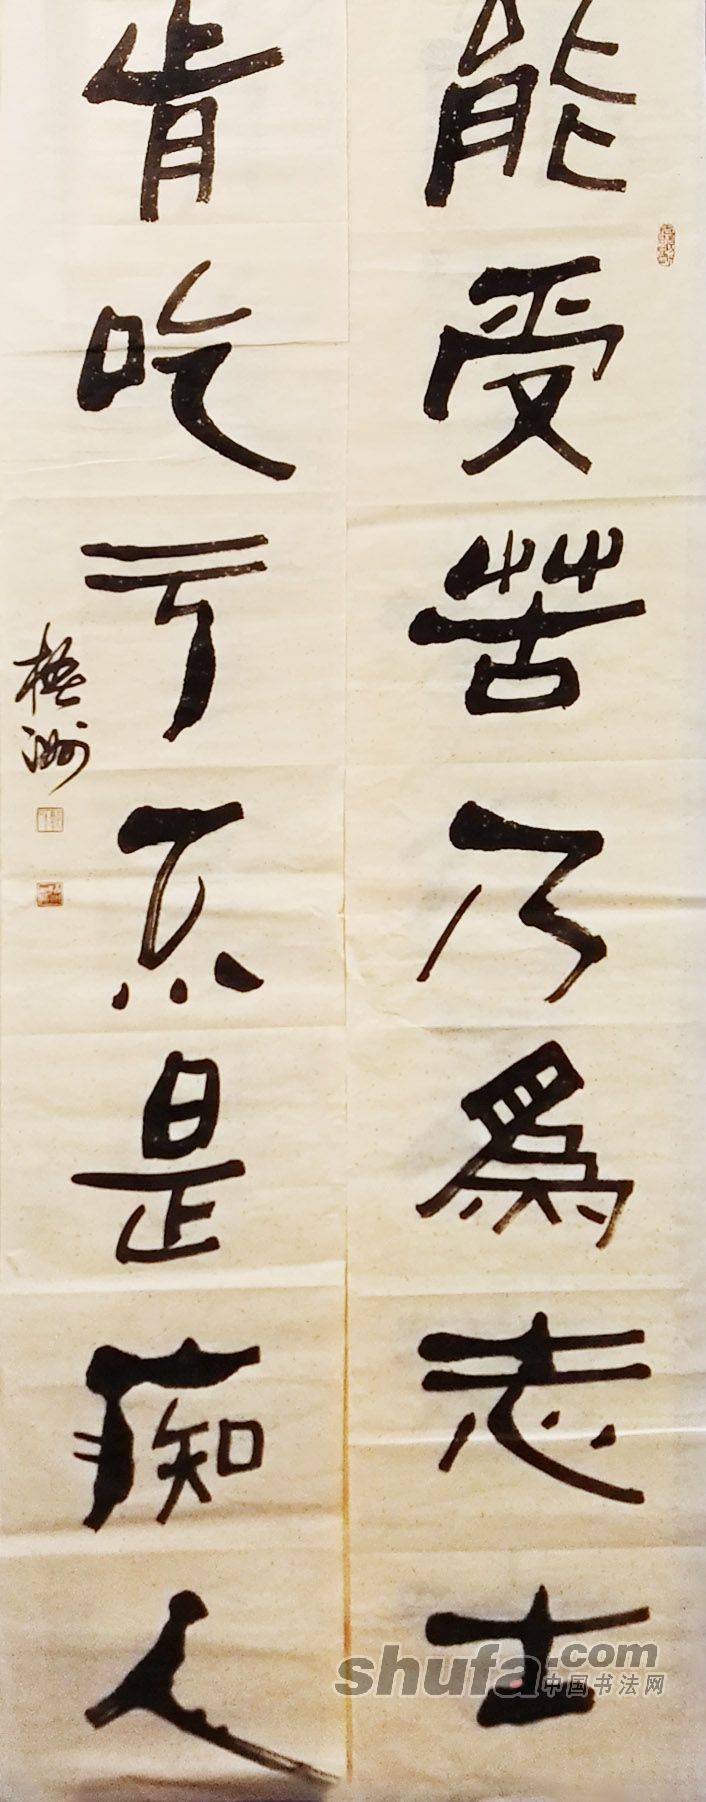 能受苦乃為志士
肯吃亏不是痴人
shufa.com
中国书法网